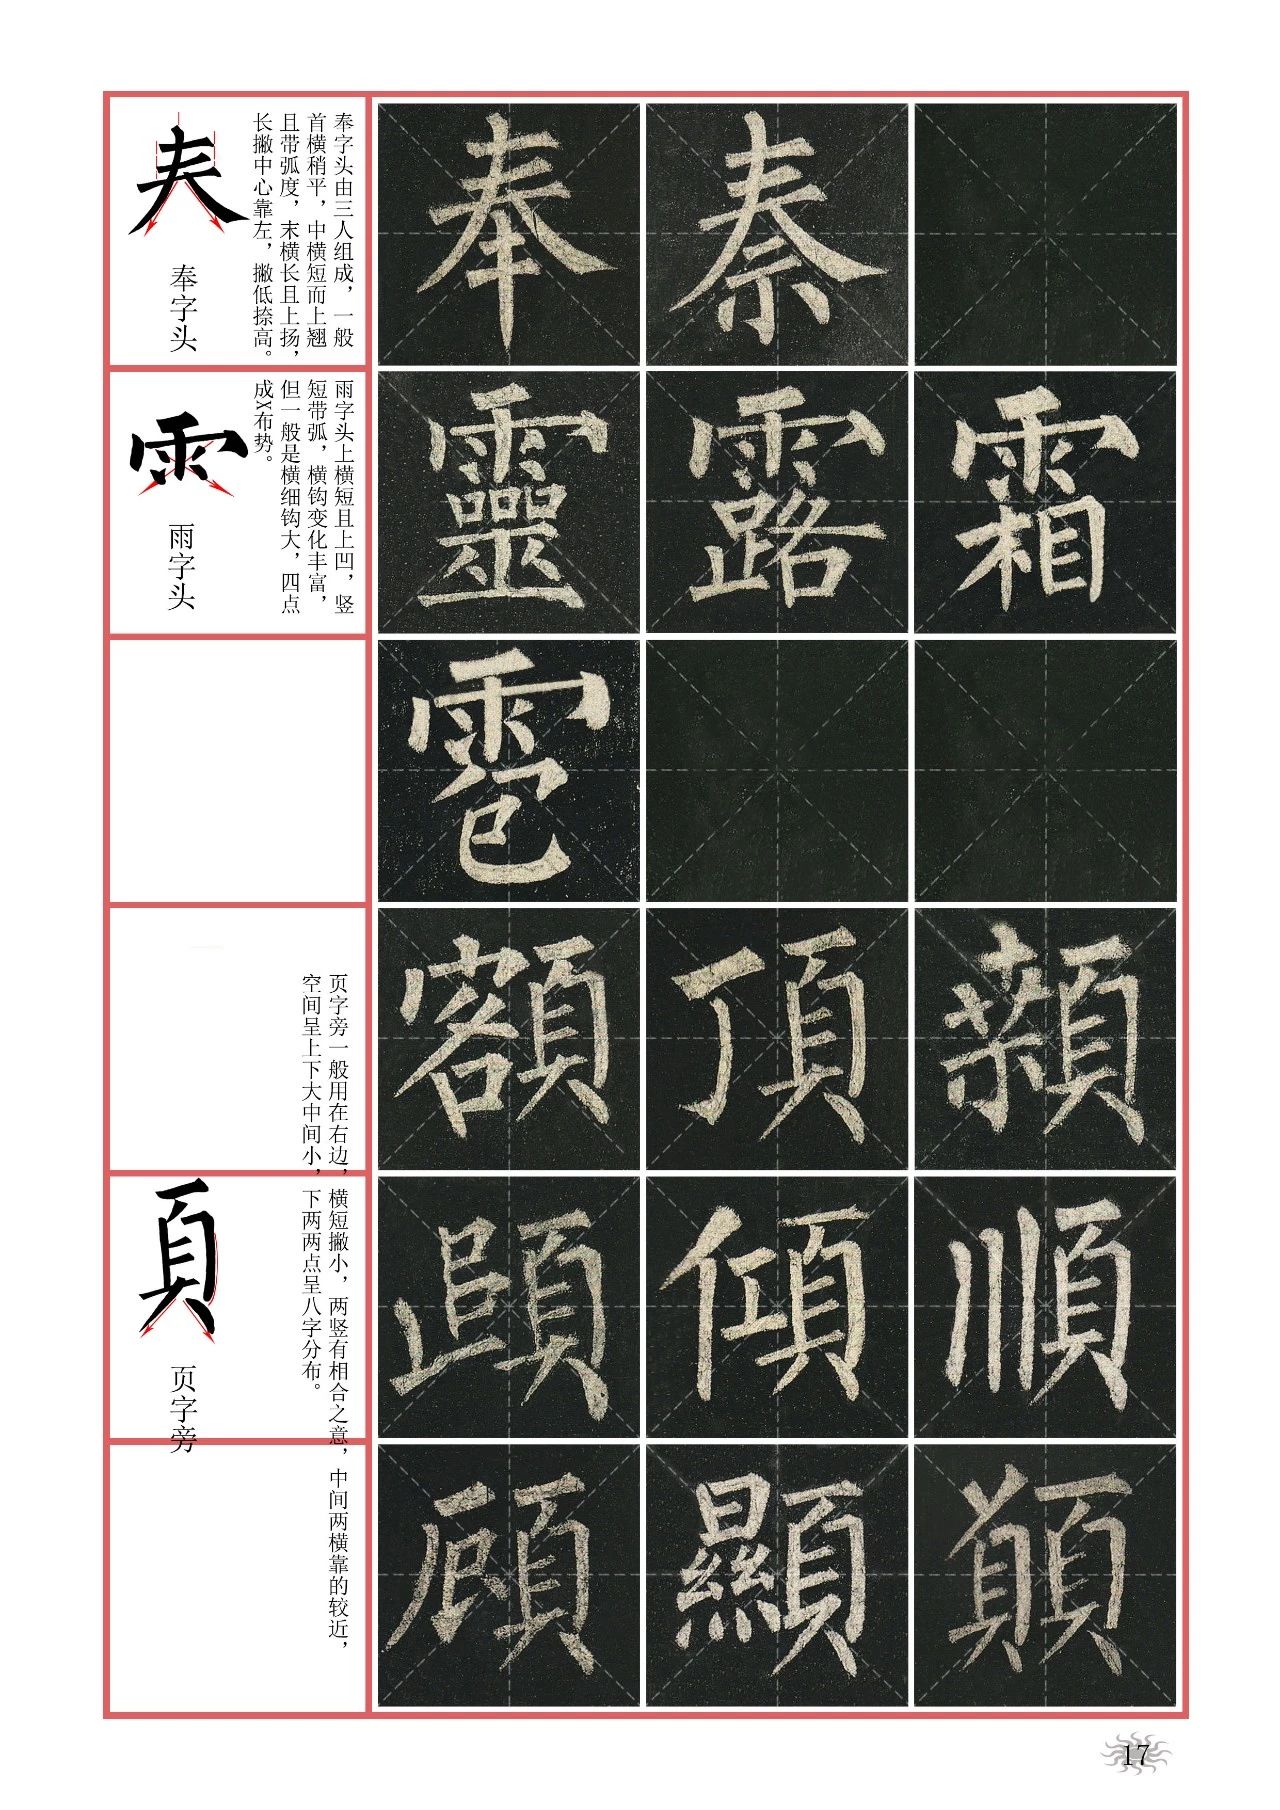 奉字头由三人组成，一般
首横稍平，中横短而上翘
且带弧度，末横长且上扬，
长撇中心靠左，撇低捺高。
𡗗
奉字头
奉 秦
雨字头上横短且上凹，竖
短带弧，横钩变化丰富，
但一般是横细钩大，四点
成X布势。
⻗
雨字头
靈 露 霜
雹
页字旁一般用在右边，横短撇小，两竖有相合之意，中间两横靠的较近，
空间呈上下大中间小，下两两点呈八字分布。
頁
页字旁
額 頂 顙
頤 傾 順
頋 顯 顛
17